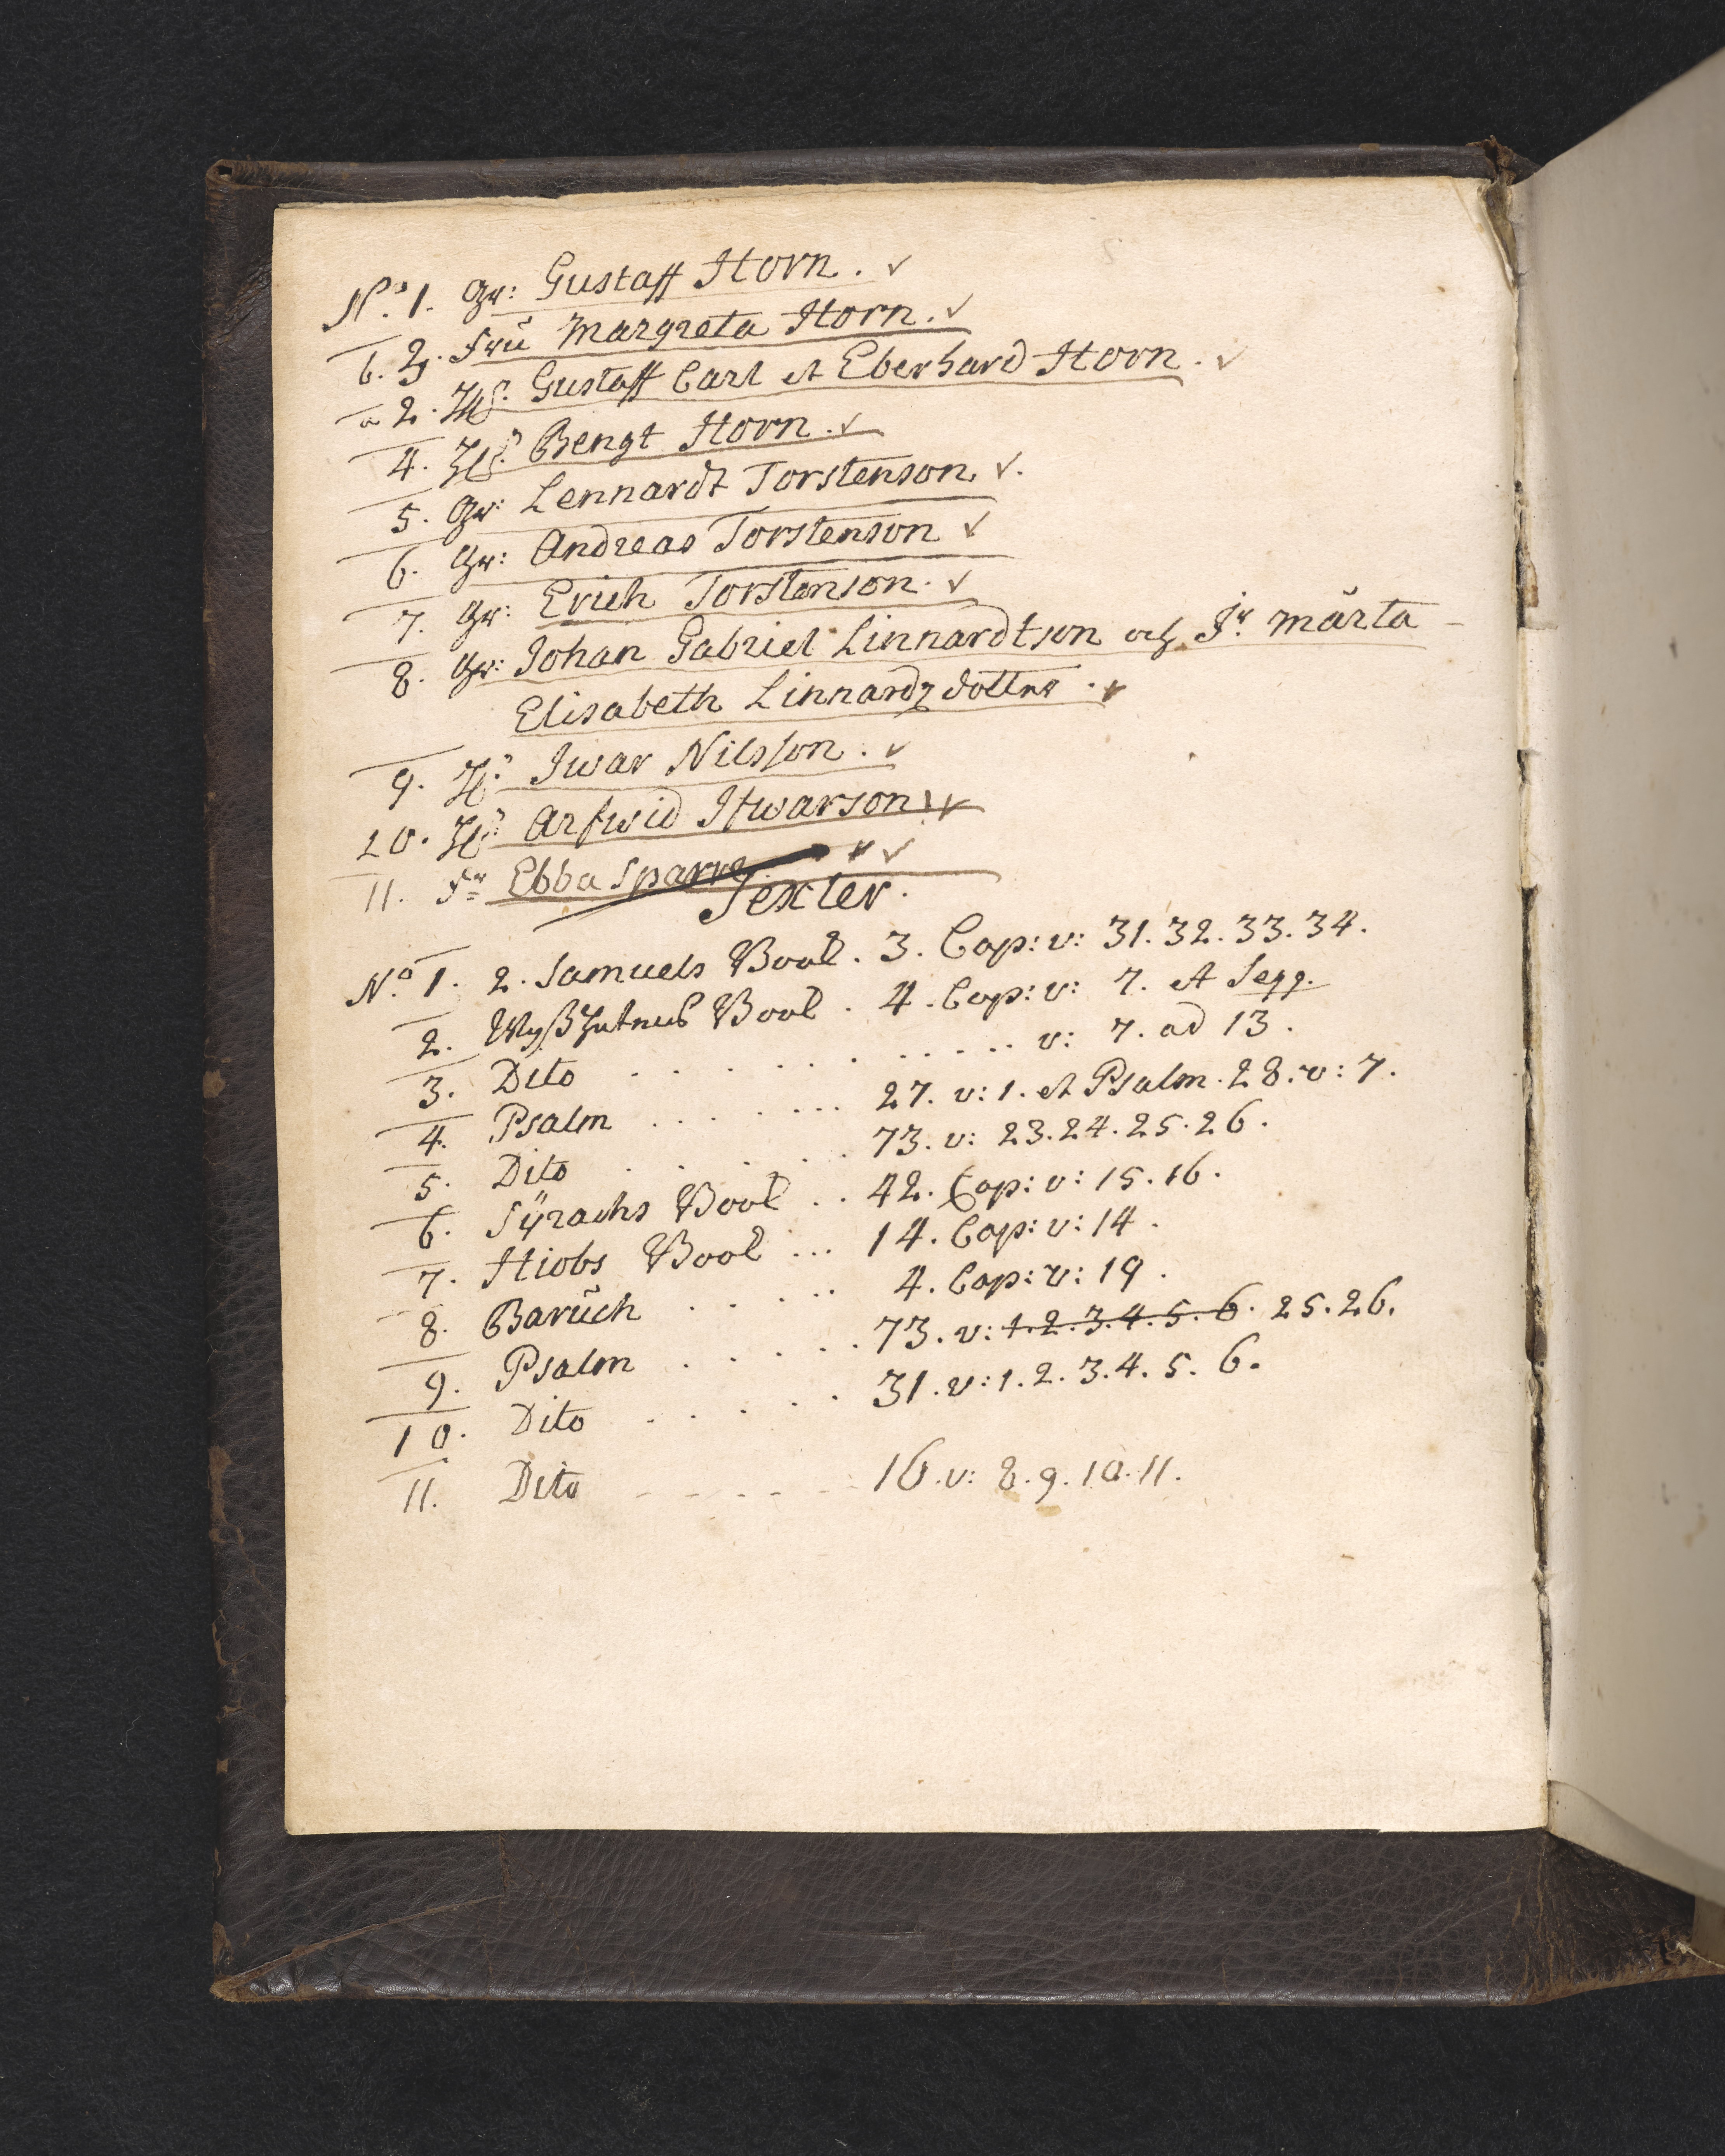 N.o 1. Gr: Gustaff Horn. ✓
b. 3. Frŭ Margreta Horn. ✓
a 2. H. Gustaff Carl et Eberhard Horn. ✓
4. H. Bengt Horn. ✓
5. Gr: Lennardt Torstenson ✓.
6. Gr: Andreas Torstenson ✓
7. Gr: Erich Torstenson. ✓
8. Gr: Johan Gabriel Linnardtson och Jr. Märta
Elisabeth Linnardz dotter. ✓
9. H. Iwar Nilsson. ✓
10. H. Arfwid Ifwarson ✓
11. Fr Ebba Sparre ✓ ✓
Texter.
N.o 1. 2. Samuels Book. 3. Cap: v: 31. 32. 33. 34.
2. Book. 4. Cap: v: 7. et Seqq.
3. Dito . . . . . . . . . . v: 7. ad 13.
4. Psalm . . . . . . . 27. v: 1. et Psalm. 28. v: 7.
5. Dito . . . . . . 73. v: 23. 24. 25. 26.
6. Sÿrachs Book . . 42. Cap: v: 15. 16.
7. Hiobs Book ... 14. Cap: v: 14.
8. Barŭch . . . . . 4. Cap: v: 19.
9. Psalm . . . . . 73. v: 1. 2. 3. 4. 5. 6. 25. 26.
10. Dito . . . . . 31. v: 1. 2. 3. 4. 5. 6.
11. Dito - - - - - - 16. v: 8. 9. 10. 11.